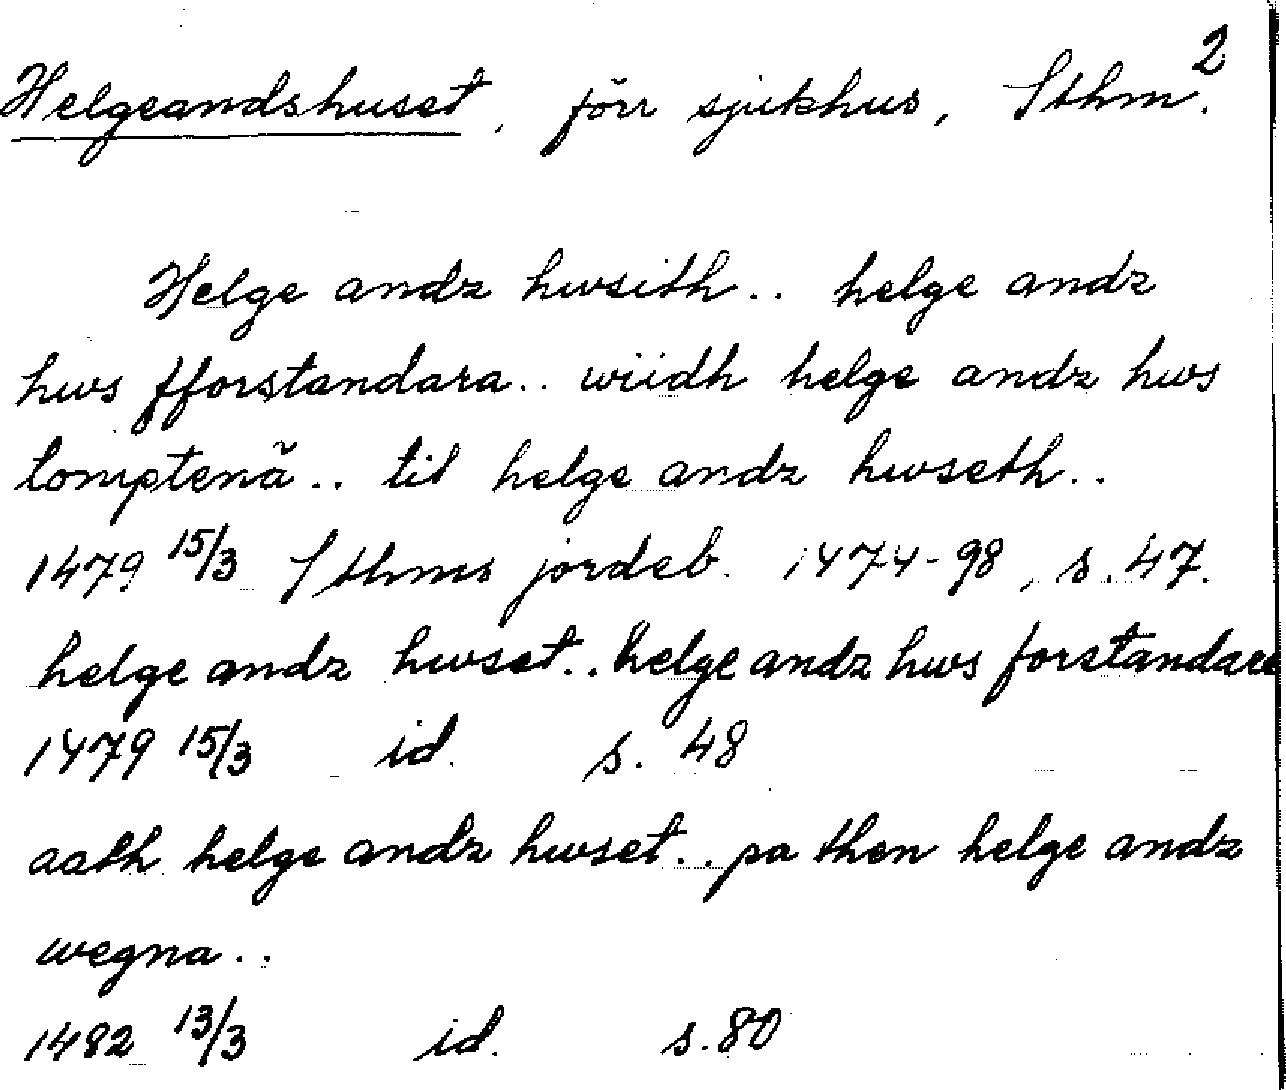 2
Helgeandshuset, förr sjukhus, Sthm.
Helge andz hwsith.. helge andz
hws fforstandara.. wiidh helge andz hws
tomptenã.. til helge andz hwseth..
1479 15/3 Sthms jordeb. 1474-98, s. 47.
helge andz hwset.. helge andz hws forstandare
1479 15/3 id. s. 48
aath helge andz hwset.. pa then helge andz
wegna..
1482 13/3 id. s. 80